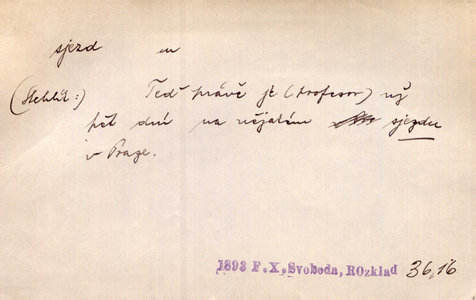 sjezd
(Steklík:) Teď právě je (profesor) už
pět dnů na nějakém sjezdu
v Praze.
1893 F.X.Svoboda, ROzklad 36,16